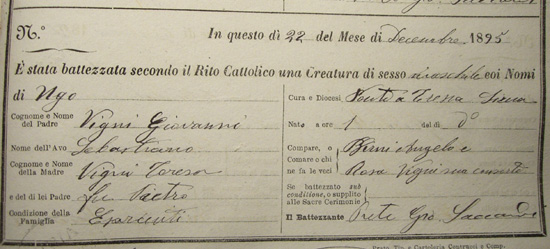 N.°
In questo dì 22 del Mese di Decembre 1895
È stata battezzata secondo il Rito Cattolico una Creatura di sesso maschile coi Nomi
di Ugo
Cognome e Nome del Padre Vigni Giovanni
Nome dell'Avo Sebastiano
Cognome e Nome della Madre Vigni Teresa
e del di lei Padre fu Pietro
Condizione della Famiglia
Cura e Diocesi Siena
Nato a ore 1 del dì d°
Compare, o Comare o chi ne fa le veci Angelo e
Rosa Vigni sua consorte
Se battezzato sub conditione, o supplito alle Sacre Cerimonie
Il Battezzante Prete Gio.